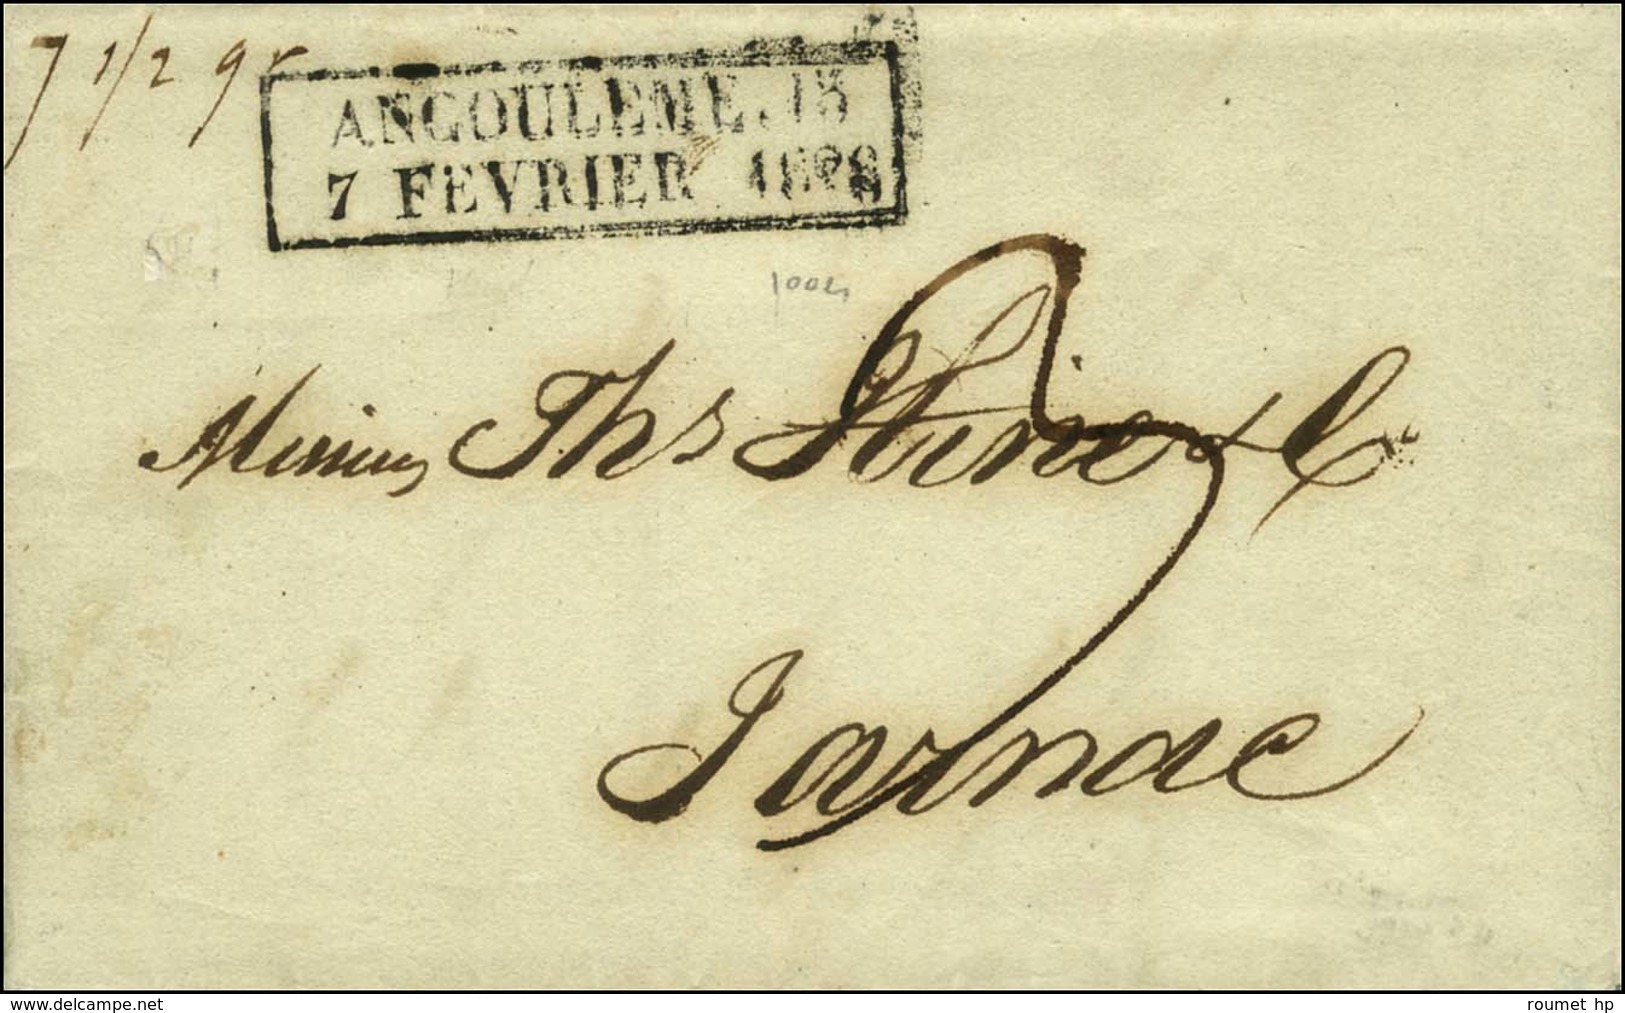 7 1/2 gr
ANGOULEME. 15
7 FEVRIER 1828
1002
Messieurs Ths Hine & Co
2
Jarnac
www.delcampe.net
roumet hp